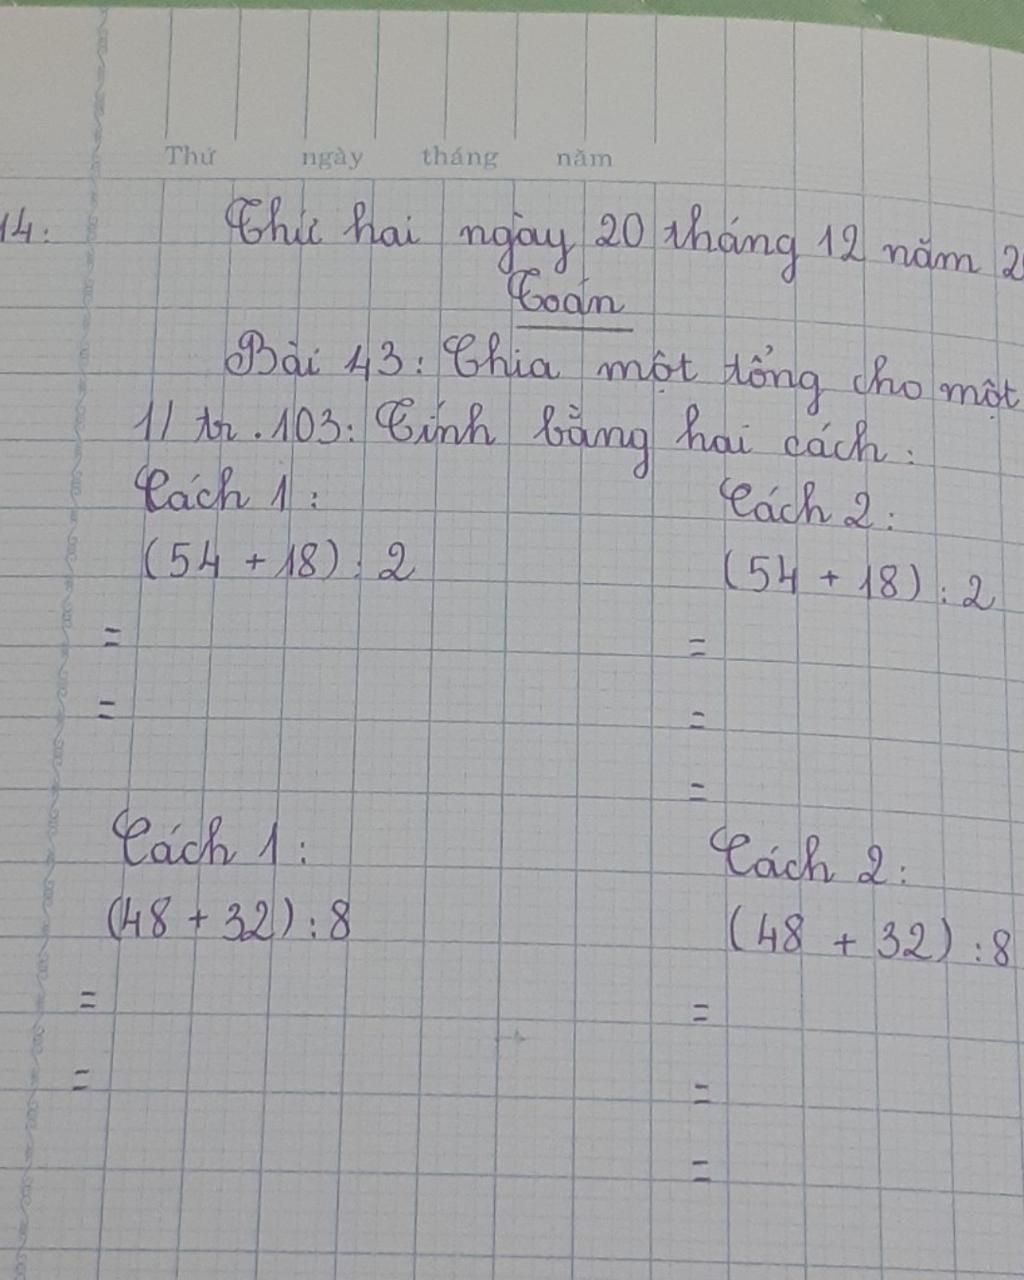 Thứ ngày tháng năm
14: Thứ hai ngày 20 tháng 12 năm 2
Toán
Bài 43: Chia một tổng cho một
1/ tr. 103: Tính bằng hai cách:
Cách 1: Cách 2:
(54 + 18) : 2 (54 + 18) : 2
= =
= =
=
Cách 1: Cách 2:
(48 + 32) : 8 (48 + 32) : 8
= =
= =
=